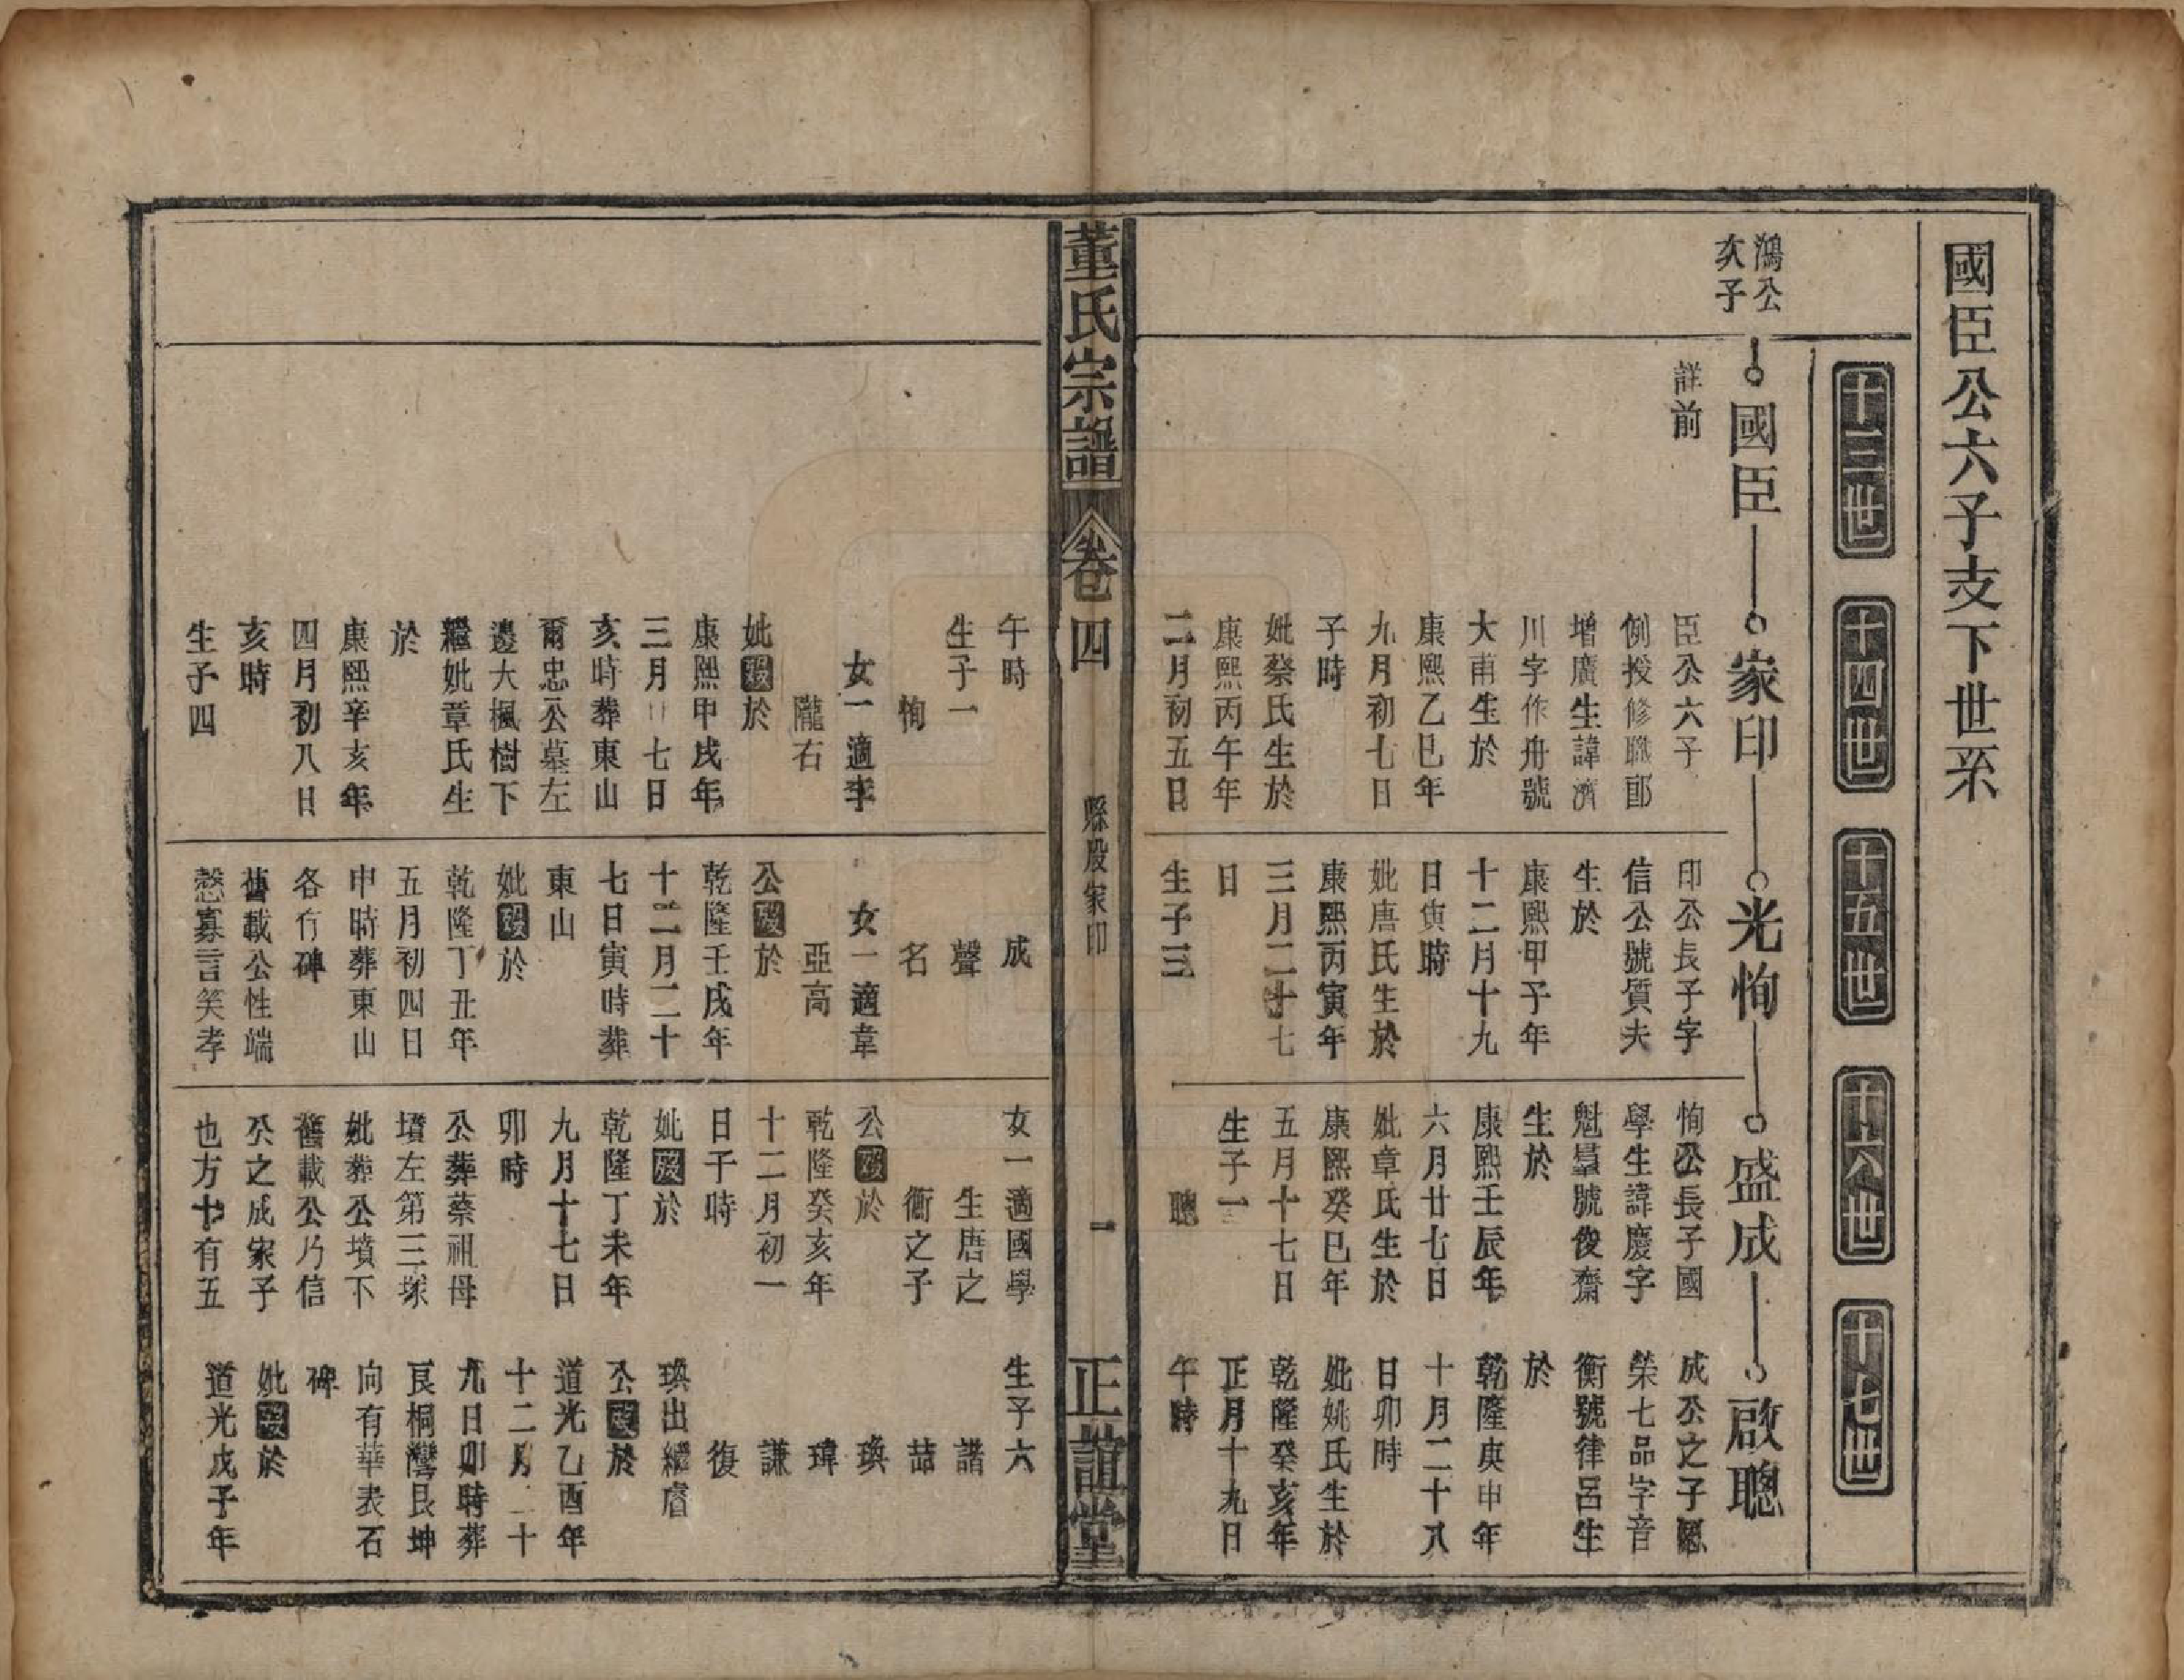 國臣公六子支下世系
十三世
十四世
十五世
十六世
十七世
鴻公
次子
國臣
家印
光恂
盛成
啟聰
註前
臣公六子
例授修職郎
增廣生諱濟
川字作舟號
大甫生於
康熙乙巳年
九月初七日
子時
妣蔡氏生於
康熙丙午年
二月初五日
印公長子字
信公號質夫
生於
康熙甲子年
十二月十九
日寅時
妣唐氏生於
康熙丙寅年
三月二十七
日
生子三
恂公長子國
學生諱慶字
魁羣號俊齋
生於
康熙壬辰年
六月廿七日
妣章氏生於
康熙癸巳年
五月十七日
生子一
聰
成公之子恩
榮七品字音
衡號律呂生
於
乾隆庚申年
十月二十八
日卯時
妣姚氏生於
乾隆癸亥年
正月十九日
午時
董氏宗譜
卷四
縣股家印
一
正誼堂
午時
生子一
恂
女一適李
隴右
妣歿於
康熙甲戌年
三月廿七日
亥時葬東山
爾忠公墓左
邊大楓樹下
繼妣章氏生
於
康熙辛亥年
四月初八日
亥時
生子四
成
聲
名
女一適韋
亞高
公歿於
乾隆壬戌年
十二月二十
七日寅時葬
東山
妣歿於
乾隆丁丑年
五月初四日
申時葬東山
各有碑
舊載公性端
慤寡言笑孝
女一適國學
生唐之
衡之子
公歿於
乾隆癸亥年
十二月初一
日子時
妣歿於
乾隆丁未年
九月十七日
卯時
公葬蔡祖母
墳左第三塚
妣葬公墳下
舊載公乃信
公之成家子
也方十有五
生子六
諧
喆
瑍
瑋
謙
復
瑍出繼睿
公歿於
道光乙酉年
十二月二十
九日卯時葬
艮桐灣艮坤
向有華表石
碑
妣歿於
道光戊子年